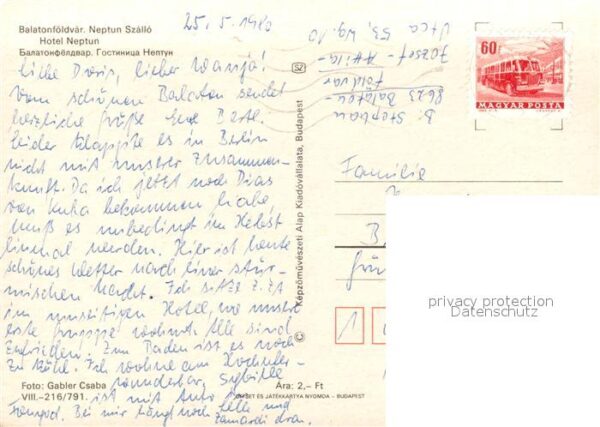 Balatonföldvár. Neptun Szálló
Hotel Neptun
Балатонфёлдвар. Гостиница Нептун
25. 5. 1980
Liebe Doris, lieber Wanja!
Vom schönen Balaton sendet
herzliche Grüße Eure
Leider klappte es in Berlin
nicht mit unserer Zusammen-
kunft. Da ich jetzt noch Dias
von Kuba bekommen habe
muß es unbedingt im Herbst
einmal werden. Hier ist heute
schönes Wetter nach einer stür-
mischen Nacht. Ich sitze z.Zt
im Hotel, wo unsere
erste Gruppe wohnt. Alle sind
zufrieden. Zum Baden ist es noch
zu kühl. Ich wohne am
wunderbar, Sybille
ist mit Auto
Bei mir hängt noch und
Zamárdi dran.
Foto: Gabler Csaba
Ára: 2,- Ft
VIII.-216/791.
OFFSET ÉS JÁTÉKKÁRTYA NYOMDA - BUDAPEST
Képzőművészeti Alap Kiadóvállalata, Budapest
B. Stephan
8623 Balaton-
földvár
József - Attila-
Utca 53,
60f
MAGYAR POSTA
Familie
B
1
privacy protection
Datenschutz